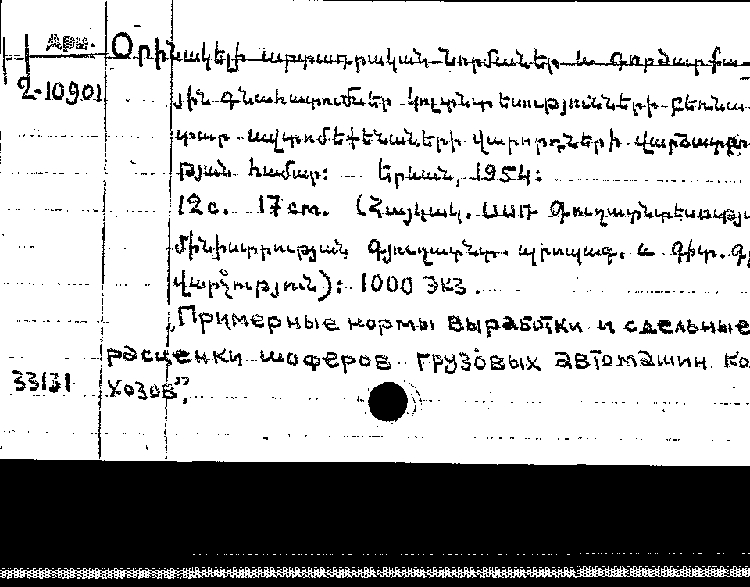 Арм. Օրինակելի արտադրական նորմաներ և գործարքա-
2-10901 յին գնահատումներ կոլտնտեսությունների բեռնա-
տար ավտոմեքենաների վարորդների վարձատրու-
թյան համար: Երևան, 1954:
12 с. 17 cm. (Հայկակ. ՍՍՌ Գյուղատնտեսությ
մինիստրության գյուղատնտ. պրոպագ. և գիտ. գլ
վարչություն): 1000 экз.
„Примерные нормы выработки и сдельные
расценки шоферов грузовых автомашин ко
33131 хозов”.